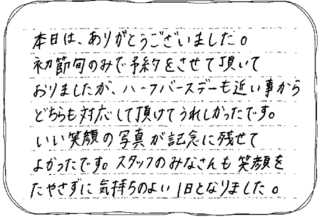 本日は、ありがとうございました。
初節句のみで予約をさせて頂いて
おりましたが、ハーフバースデーも近い事から
どちらも対応して頂けてうれしかったです。
いい笑顔の写真が記念に残せて
よかったです。スタッフのみなさんも笑顔を
たやさずに気持ちのよい1日となりました。